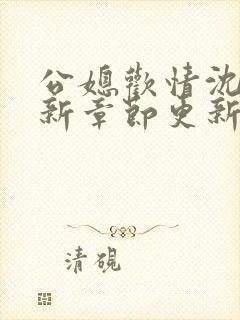 公媳歡情沈
新章節更新
清硯